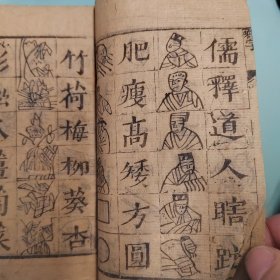 儒釋道人瞎跛
肥瘦髙矮方圓
竹荷梅柳葵杏